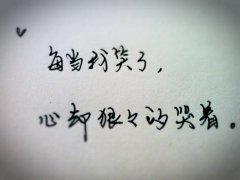 “每当我笑了，
心却狠々的哭着。